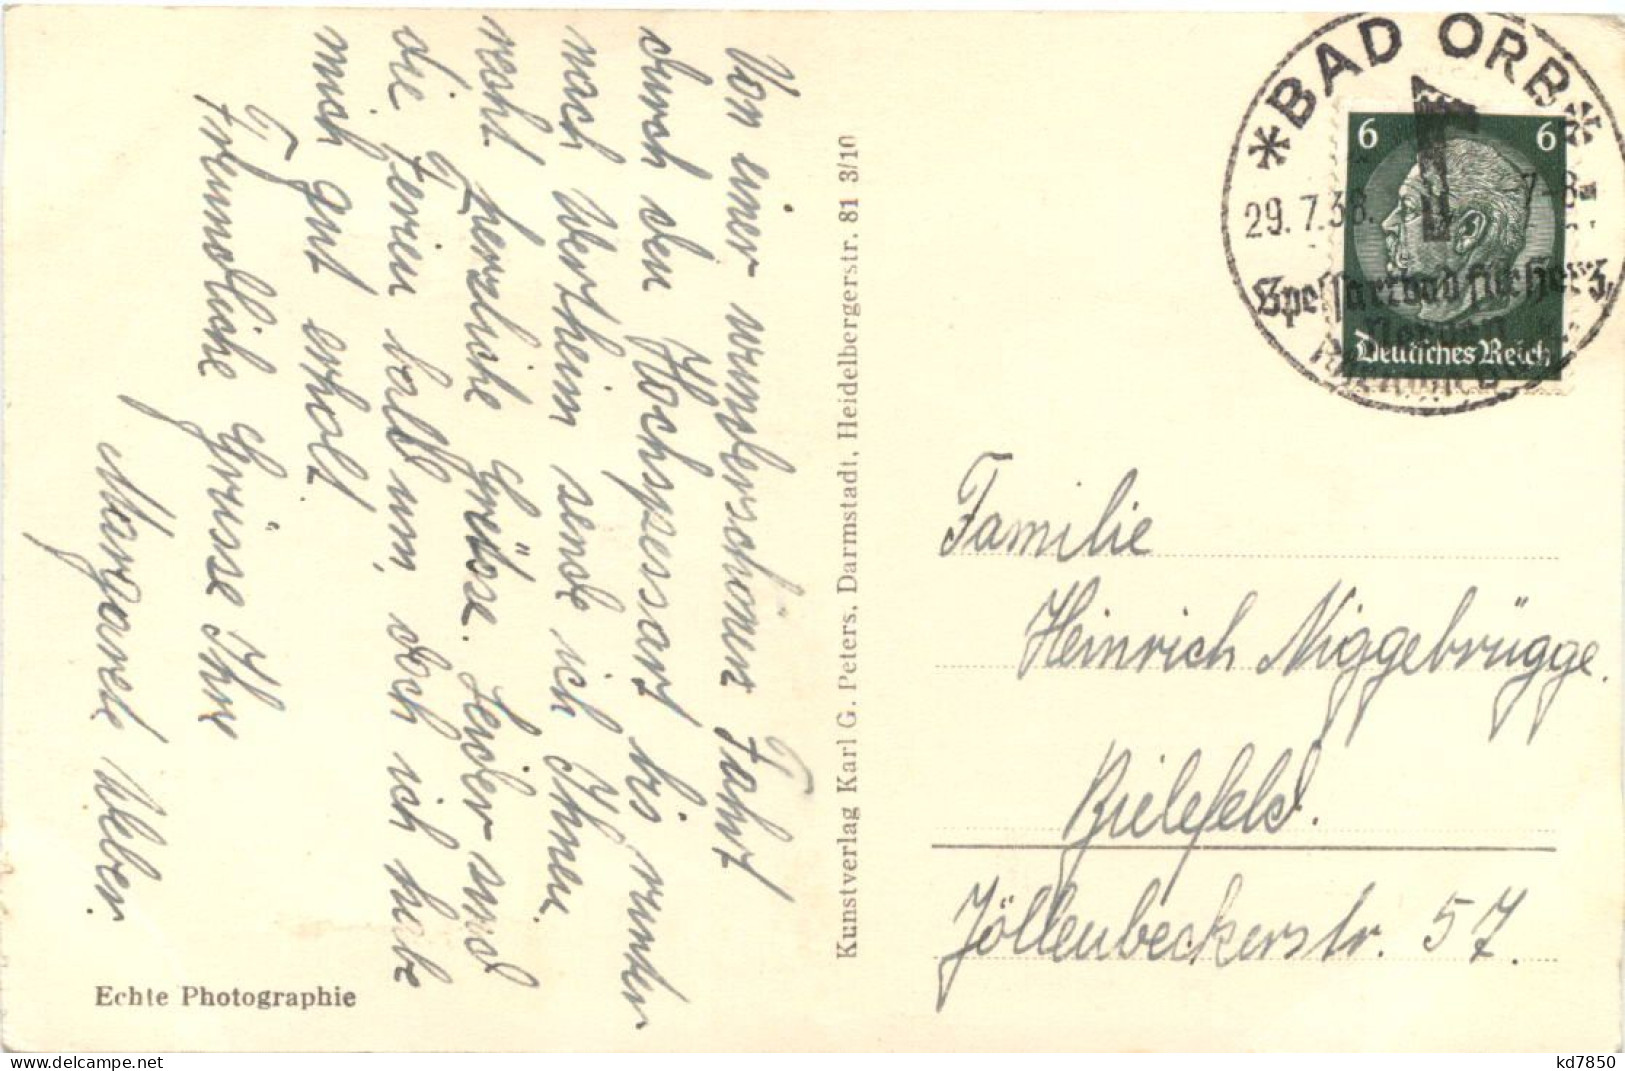 Von einer wunderschönen Fahrt
durch den Hochspessart bis runter
nach Wertheim sende ich Ihnen
recht herzliche Grüße. Leider sind
die Ferien bald um, doch ich habe
mich gut erholt.
Freundliche Grüsse Ihre
Margarete Weber.
Echte Photographie
Kunstverlag Karl G. Peters, Darmstadt, Heidelbergerstr. 81 3/10
* BAD ORB *
29.7.38. 7-8
Spessartbad für Herz,
6 6
Deutsches Reich
Familie
Heinrich Niggebrügge.
Bielefeld.
Jöllenbeckerstr. 57.
www.delcampe.net
kd7850